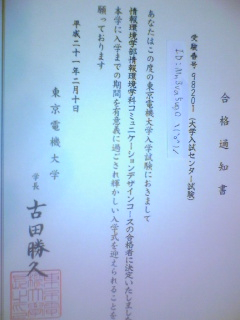 合格通知書
受験番号:918201 (大学入試センター試験)
あなたはこの度の東京電機大学入学試験におきまして
情報環境学部情報環境学科コミュニケーションデザインコースの合格者に決定いたしまし
本学に入学までの期間を有意義に過ごされ輝かしい入学式を迎えられることを
願っております
平成二十一年二月十日
東京電機大学
学長 古田勝久